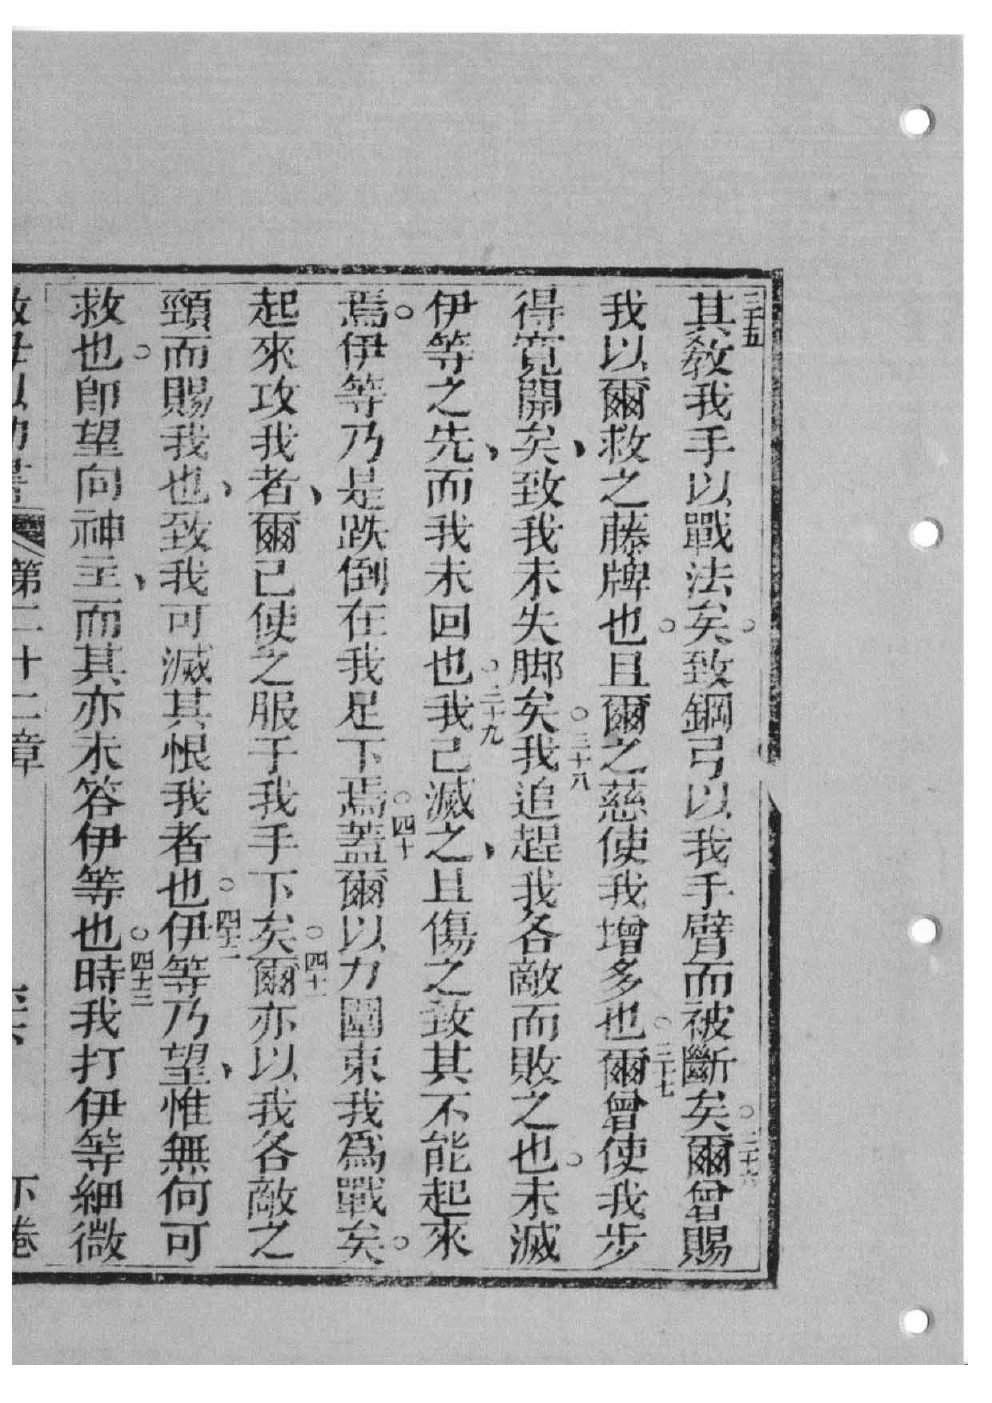 三十五其敎我手以戰法矣。致鋼弓以我手臂而被斷矣。三十六爾曾賜
我以爾救之藤牌也。且爾之慈使我增多也。三十七爾曾使我步
得寬開矣、致我未失脚矣。三十八我追趕我各敵而敗之也。未滅
伊等之先、而我未回也。三十九我已滅之、且傷之致其不能起來
焉。伊等乃是跌倒在我足下焉。四十蓋爾以力圍束我爲戰矣。
起來攻我者、爾已使之服于我手下矣。四十一爾亦以我各敵之
頸而賜我也、致我可滅其恨我者也。四十二伊等乃望、惟無何可
救也。卽望向神主、而其亦未答伊等也。四十三時我打伊等細微
第二十二章 下卷